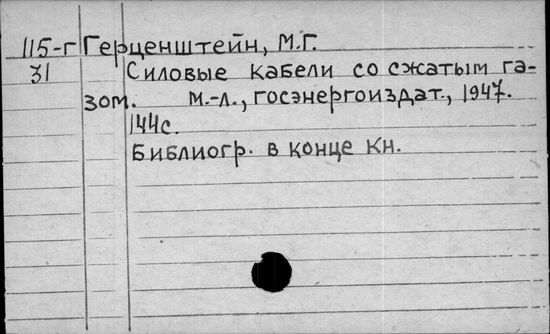 115-г Герценштейн, М.Г.
31 Силовые кабели со сжатым га-
зом. М.-Л., Госэнергоиздат., 1947.
144с.
Библиогр. в конце кн.